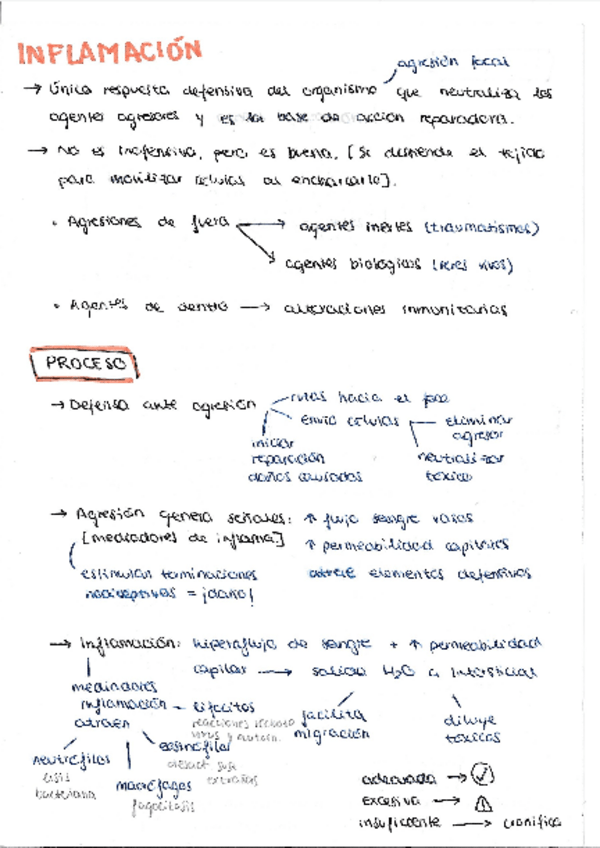 INFLAMACIÓN
agresión focal
→ Única respuesta defensiva del organismo que neutraliza los
agentes agresores y es la base de acción reparadora.
→ No es inofensiva, pero es buena. [Se distiende el tejido
para movilizar células al encharcarlo].
• Agresiones de fuera → agentes inertes (traumatismos)
→ agentes biológicos (seres vivos)
• Agentes de dentro → alteraciones inmunitarias
PROCESO
→ Defensa ante agresión
rutas hacia el foco
envío células
eliminar
agresor
neutralizar
tóxico
iniciar
reparación
daños causados
→ Agresión genera señales: ↑ flujo sangre vasos
[mediadores de inflama] ↑ permeabilidad capilares
estimulan terminaciones atrae elementos defensivos
nociceptivas = ¡daño!
→ Inflamación: hiperaflujo de sangre + ↑ permeabilidad
capilar → salida H2O a intersticial
mediadores
inflamación
atraen
linfocitos
reacciones rechazo
virus y autoin.
facilita
migración
diluye
tóxicos
neutrófilos
lisis
bacteriana
eosinófilos
sus
extrañas
macrófagos
fagocitosis
adecuada →
excesiva →
insuficiente → cronifica